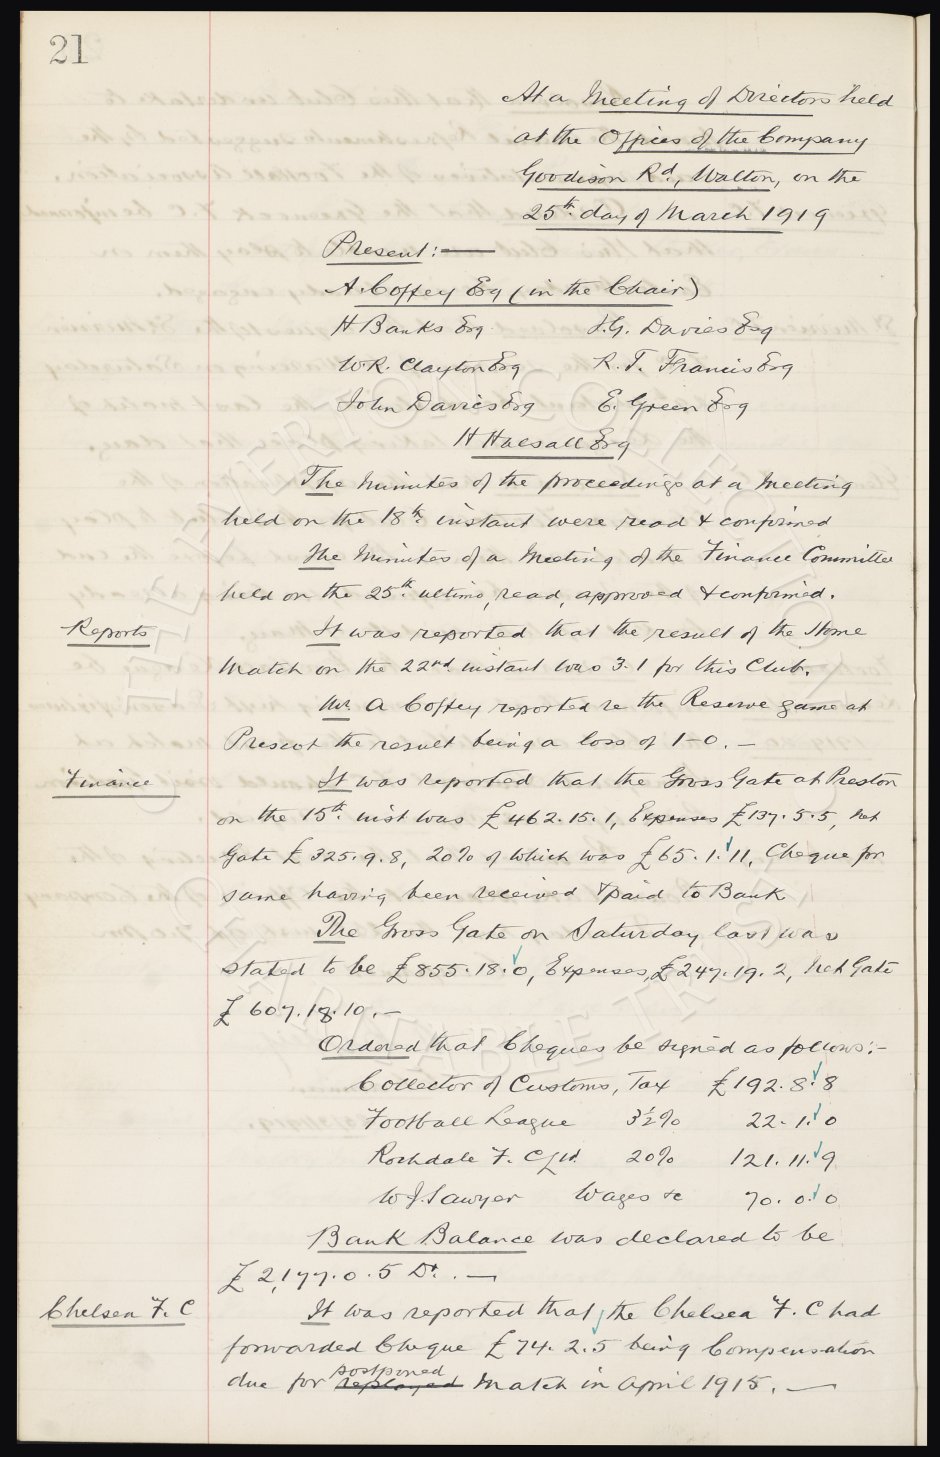 21
At a Meeting of Directors held
at the Offices of the Company
Goodison Rd., Walton, on the
25th day of March 1919
Present:—
A. Coffey Esq (in the Chair)
H Banks Esq J.G. Davies Esq
W.R. Clayton Esq R.T. Francis Esq
John Davies Esq E. Green Esq
H Halsall Esq
The Minutes of the proceedings at a Meeting
held on the 18th. instant were read & confirmed
The Minutes of a Meeting of the Finance Committee
held on the 25th. ultimo, read, approved & confirmed.
Reports It was reported that the result of the Home
Match on the 22nd instant was 3-1 for this Club.
Mr A Coffey reported re the Reserve game at
Prescot the result being a loss of 1-0. —
Finance It was reported that the Gross Gate at Preston
on the 15th. inst was £462.15.1, Expenses £137.5.5, net
Gate £325.9.8, 20% of which was £65.1.11, Cheque for
same having been received & paid to Bank
The Gross Gate on Saturday last was
stated to be £855.18.0, Expenses, £247.19.2, Net Gate
£607.18.10. —
Ordered that Cheques be signed as follows:-
Collector of Customs, Tax £192.8.8
Football League 3½% 22.1.0
Rochdale F. C Ltd. 20% 121.11.9
W.J. Sawyer Wages &c 70.0.0
Bank Balance was declared to be
£2,177.0.5 Dr. . —
Chelsea F. C It was reported that the Chelsea F. C had
forwarded Cheque £74.2.5 being Compensation
postponed
due for replayed Match in April 1915. —
THE EVERTON COLLECTION
CHARITABLE TRUST